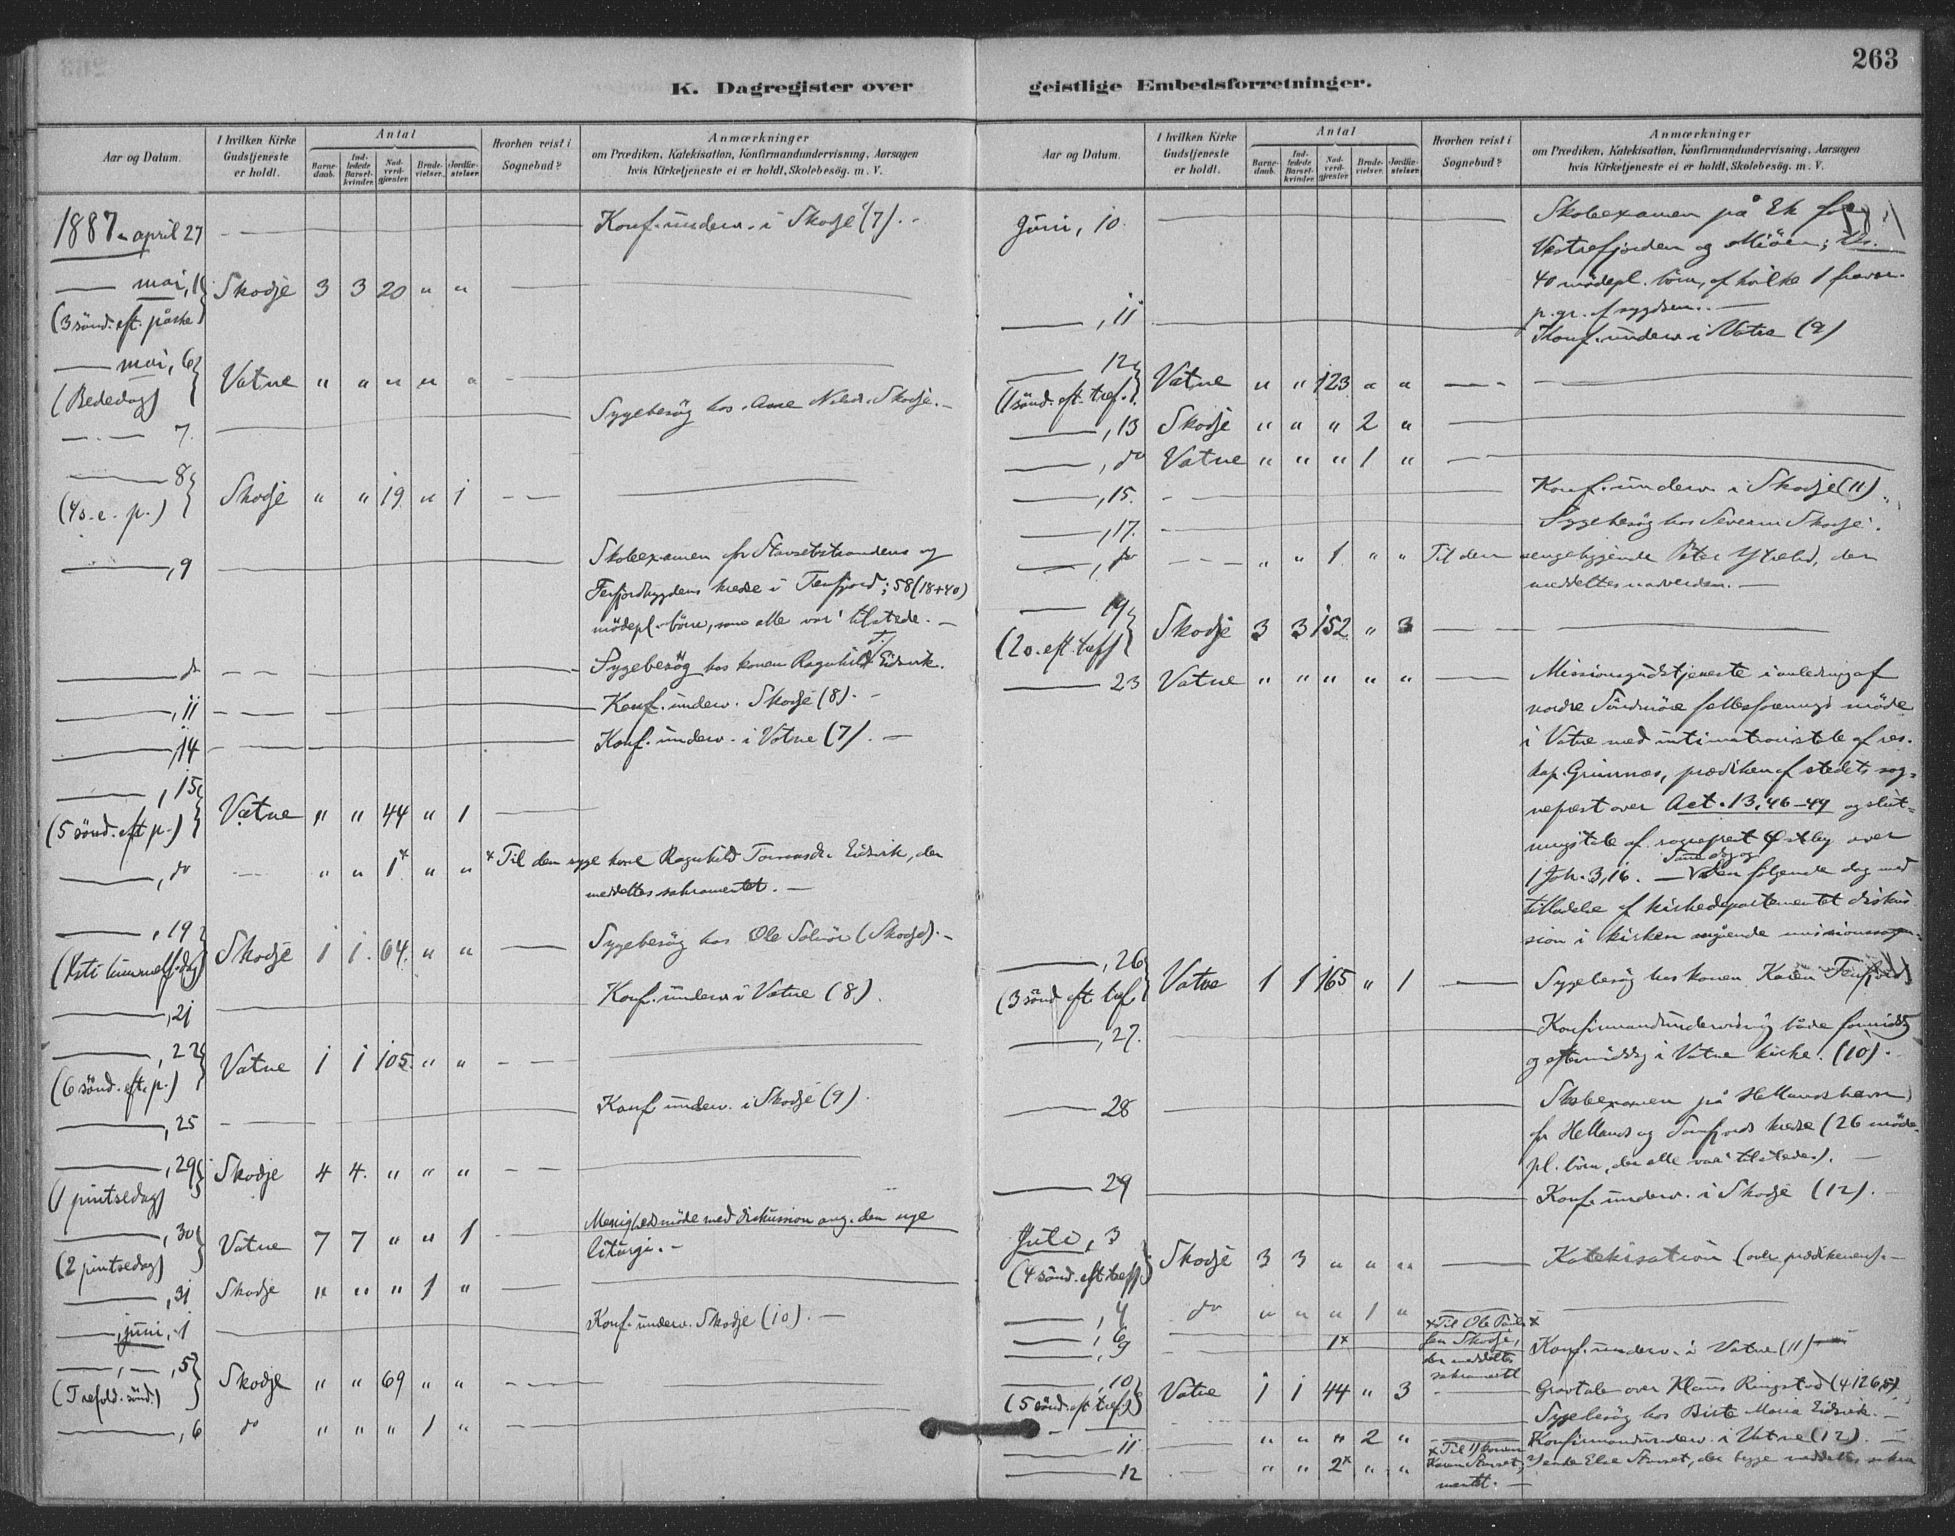 263
K. Dagregister over
geistlige Embedsforretninger.
Aar og Datum.
I hvilken Kirke Gudstjeneste er holdt.
Antal
Barnedaab.
Indledede Barselkvinder.
Nadverdgjæster.
Brudevielser.
Jordfæstelser.
Hvorhen reist i Sognebud?
Anmærkninger
om Prædiken, Katekisation, Konfirmandundervisning, Aarsagen
hvis Kirketjeneste ei er holdt, Skolebesög. m. V.
1887. april 27 Konf. underv. i Skodje (7). -
mai, 1 Skodje 3 3 20 " "
(3 sønd. eft. påske)
mai, 6 Vatne " " " " "
(Bededag)
7. Sygebesøg hos Skodje. -
8 Skodje " " 19 " 1
(4 s. e. p.)
, 9 Skoleexamen for Stavsetstrandens og
Tenfjordbygdens kredse i Tenfjord; 58 (18+40)
mødepl. børn, som alle var tilstede. -
do Sygebesøg hos konen Ragnhild T. Eidsvik.
, 11 Konf. underv. Skodje (8). -
, 14 Konf. underv. i Vatne (7). -
, 15 Vatne " " 44 " 1
(5 sønd. eft p.)
, do " " 1x " " x Til den syge kone Ragnhild Eidsvik, der
meddeltes sakramentet. -
, 19 Skodje 1 1. 64. " " Sygebesøg hos Ole Solnør (Skodje). -
(Kristi himmelf. dag)
, 21 Konf. underv i Vatne (8).
, 22 Vatne 1 1 105. " "
(6 sønd. eft. p.)
, 25 Konf underv. i Skodje (9).
, 29 Skodje 4 4. " " "
(1 pintsedag)
, 30 Vatne 7 7 " " 1 Menighedsmøde med diskussion ang. den nye
(2 pintsedag) liturgi. -
, 31 Skodje " " " 1 "
, juni, 1 Konf. underv. Skodje (10). -
, 5 Skodje " " 69 " "
(Trefold. sønd.)
, 6 do " " " 1 "
Aar og Datum.
I hvilken Kirke Gudstjeneste er holdt.
Antal
Barnedaab.
Indledede Barselkvinder.
Nadverdgjæster.
Brudevielser.
Jordfæstelser.
Hvorhen reist i Sognebud?
Anmærkninger
om Prædiken, Katekisation, Konfirmandundervisning, Aarsagen
hvis Kirketjeneste ei er holdt, Skolebesög. m. V.
Juni, 10. Skoleexamen på Ek for
Vestrefjorden og
40 mødepl. børn, af hvilke 1 fravær.
p. gr. af sygdom. -
, 11 Konf. underv i Vatne (9)
12 Vatne " " 123 " "
(1 sønd. eft. tref.)
, 13 Skodje " " " 2 "
, do Vatne " " " 1 "
, 15. Konf. underv. i Skodje (11).
, 17. Sygebesøg hos Skodje.
, do " " 1 " " Til den sengeliggende Peter der
meddeltes nadverden. -
19 Skodje 3 3 152 " 3
(2 s. eft. tref)
23 Vatne " " " " " Missionsgudstjeneste i anledning af
nordre Søndmøre fællesforenings møde
i Vatne med intimationstale af res.
kap. Grimnæs, prædiken af stedets sog-
nepræst over Act. 13, 46-49 og slut-
ningstale af sognepræst Østby over
1 Joh. 3, 16. - følgende dag med
tilladelse af kirkedepartementet diskus-
sion i kirken angående missionssagen.
, 26 Vatne 1 1 165 " 1 Sygebesøg hos konen Karen Tenfjord
(3 sønd eft tref.)
, 27. Konfirmandundervisning både formiddag
og eftermiddag i Vatne kirke. (10). -
28 Skoleexamen på Hellandshavn
for Hellands og kredse (26 møde-
pl. børn, der alle var tilstede). -
29 Konf. underv. i Skodje (12). -
Juli, 3 Skodje 3 3 " " " Katekisation (over prædikenen). -
(4 sønd. eft tref)
, 4 do " " " 1 "
, 6 1x x Til Ole
Skodje,
der meddeltes
sakramentet
, 9 Konf. underv. i Vatne (11)
, 10 Vatne 1 1 44 " 3 Gravtale over Klaus Ringstad
(5 sønd. eft tref.) Sygebesøg hos Birte Maria Eidsvik. -
11 " " " 2 " Konfirmandunderv. i Vatne (12). -
12 " " 2x " " x Til 1) konen
Karen Stavset, 2) enke Else Stavset, der begge meddeltes sakra-
mentet. -